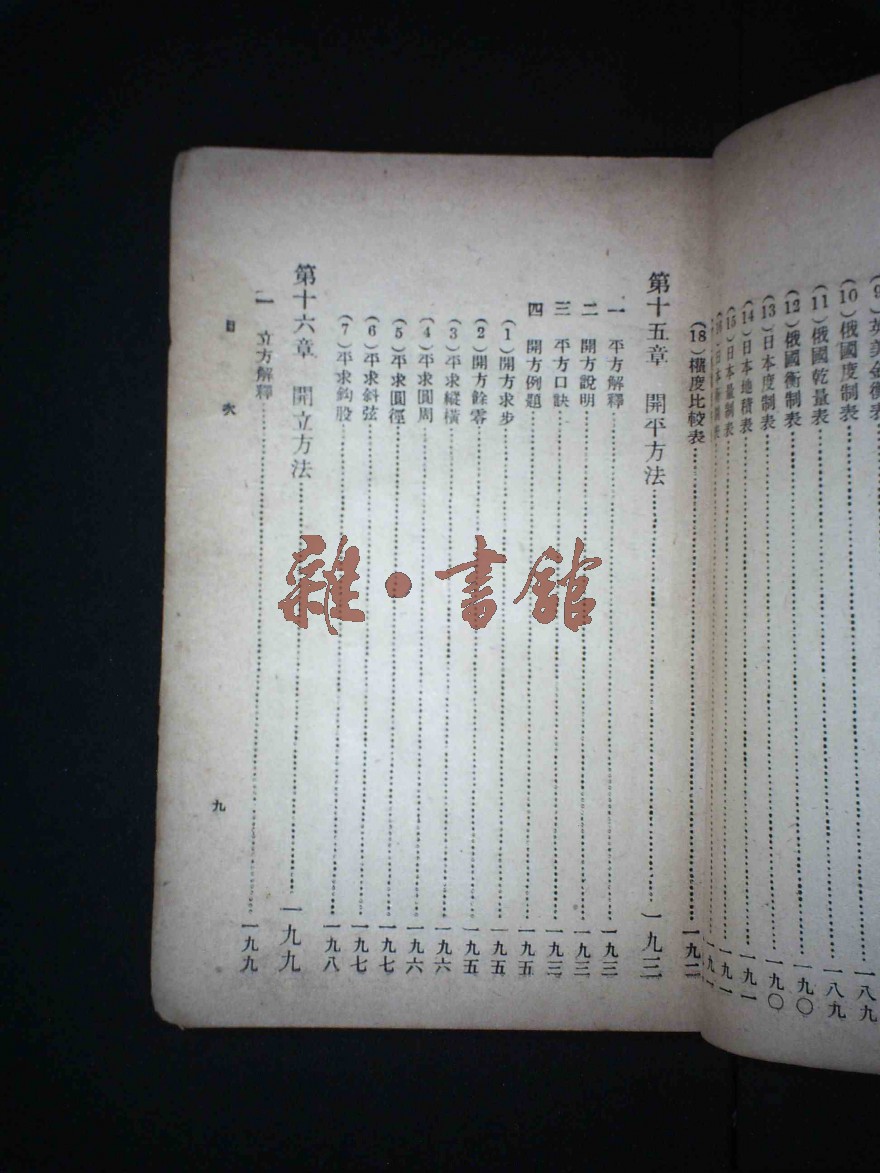 (10)俄國度制表……一八九
(11)俄國乾量表……一八九
(12)俄國衡制表……一九〇
(13)日本度制表……一九〇
(14)日本地積表……一九一
(15)日本量制表……一九一
(18)櫃度比較表……一九二
第十五章 開平方法……一九三
一 平方解釋……一九三
二 開方說明……一九三
三 平方口訣……一九三
四 開方例題……一九五
(1)開方求步……一九五
(2)開方餘零……一九五
(3)平求縱橫……一九六
(4)平求圓周……一九六
(5)平求圓徑……一九七
(6)平求斜弦……一九七
(7)平求鈎股……一九八
第十六章 開立方法……一九九
一 立方解釋……一九九
目次
九
雜·書館